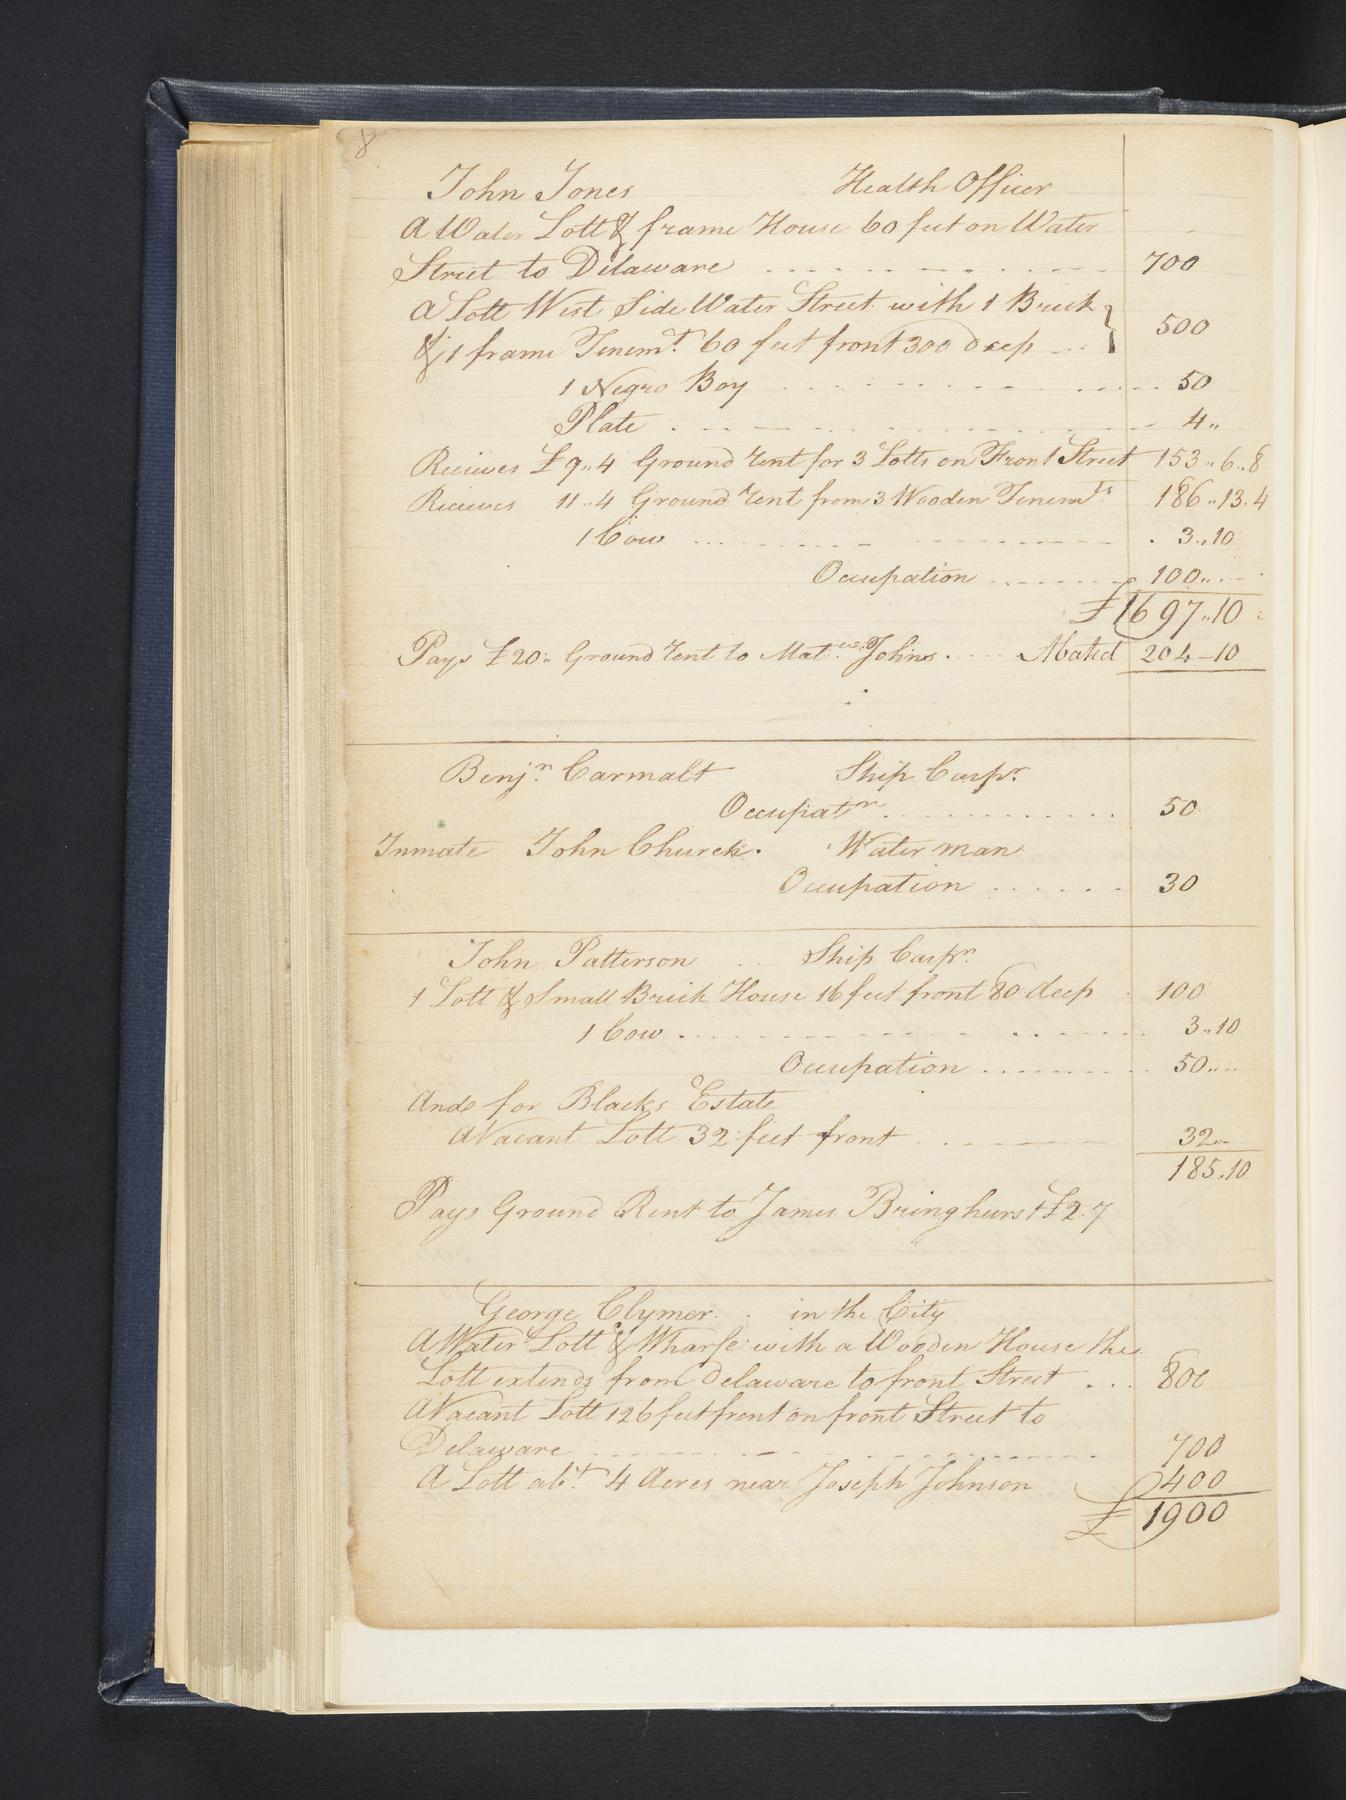 8
John Jones Health Officer
A Water Lott & frame House 60 feet on Water
Street to Delaware 700
A Lott West Side Water Street with 1 Brick
& 1 frame Tenemt. 60 feet front 300 deep } 500
1 Negro Boy 50
Plate 4„
Recieves £9„4 Ground rent for 3 Lotts on Front Street 153„6„8
Recieves 11„4 Ground rent from 3 Wooden Tenemts 186„13.4
1 Cow 3„10
Occupation 100„
£1697„10
Pays £20„ Ground rent to Matw. Johns Abated 204–10
Benjn. Carmalt Ship Carpr.
Occupatn 50
Inmate John Church. Water man
Occupation 30
John Patterson Ship Carpr.
1 Lott & Small Brick House 16 feet front 80 deep 100
1 Cow 3„10
Occupation 50„
And for Blacks Estate
A Vacant Lott 32 feet front 32„
185.10
Pays Ground Rent to James Bringhurst £2.7
George Clymer in the City
A Water Lott & Wharfe with a Wooden House the
Lott extends from Delaware to front Street 800
A Vacant Lott 126 feet front on front Street to
Delaware 700
A Lott abt. 4 Acres near Joseph Johnson 400
£1900